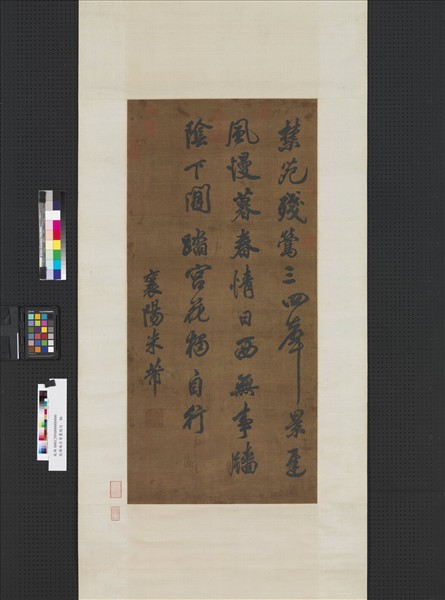 禁苑殘鶯三四聲景遲
風慢暮春情日西無事牆
陰下閒蹋宮花獨自行
襄陽米芾